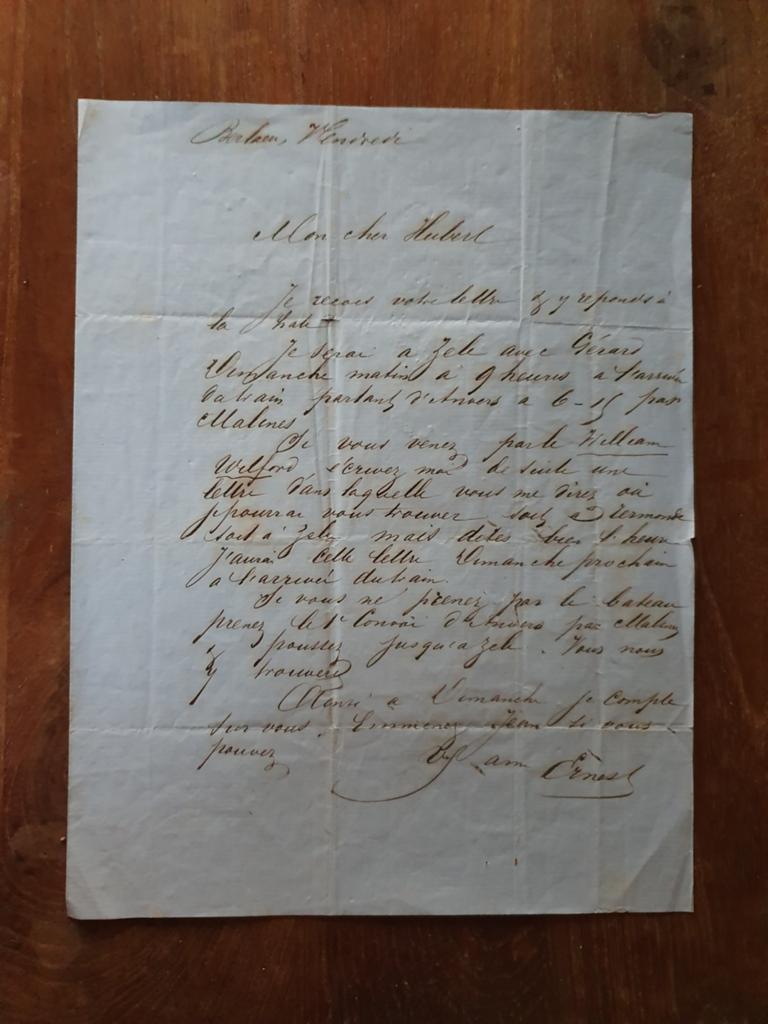 Berlaer, Vendredi
Mon cher Hubert
Je recois votre lettre & y reponds à
la hate
Je serai a Zele avec Gérard
Dimanche matin à 9 heures a l'arrivée
du train partant d'Anvers a 6-15 par
Malines
Si vous venez par le William
Wilford, écrivez moi de suite une
lettre dans laquelle vous me direz où
je pourrai vous trouver soit a Termonde
soit à Zele mais dites bien l'heure
J'aurai cette lettre Dimanche prochain
a l'arrivée du train.
Si vous ne prenez pas le bateau
prenez le 1r Convoi d'Anvers par Malines
& poussez jusqu'a Zele. Vous nous
y trouverez
Ainsi a Dimanche je compte
sur vous. Emmenez Jean si vous
pouvez
ami Ernest